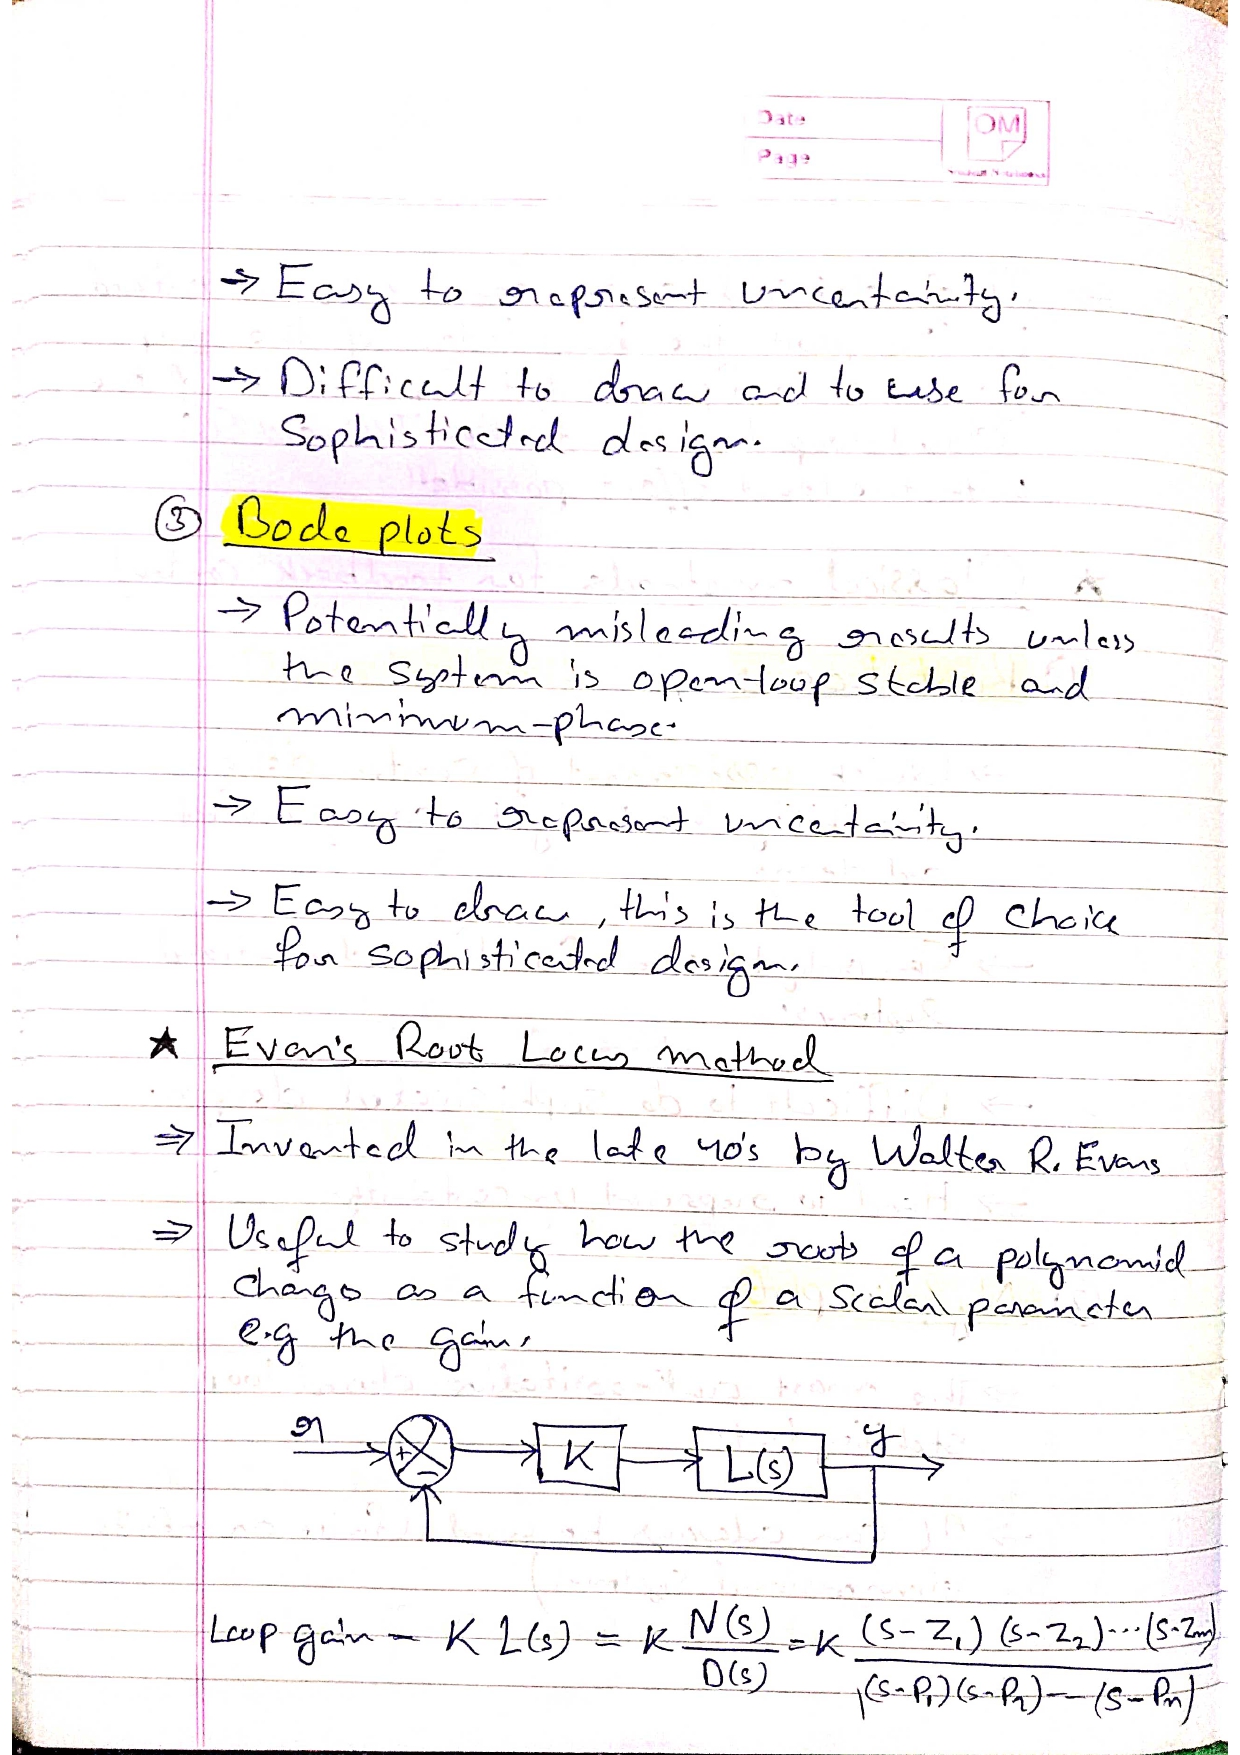 Date
Page
OM
→ Easy to represent uncertainity.
→ Difficult to draw and to use for
Sophisticated design.
③ Bode plots
→ Potentially misleading results unless
the system is open-loop stable and
minimum-phase.
→ Easy to represent uncertainity.
→ Easy to draw, this is the tool of choice
for sophisticated design.
★ Evan's Root Locus method
⇒ Invented in the late 40's by Walter R. Evans
⇒ Useful to study how the roots of a polynomial
change as a function of a scalar parameter
e.g the gain.
r + − K L(s) y
Loop gain = K L(s) = K N(s)/D(s) = K (s-z₁)(s-z₂)...(s-zm)/(s-p₁)(s-p₂)---(s-pn)